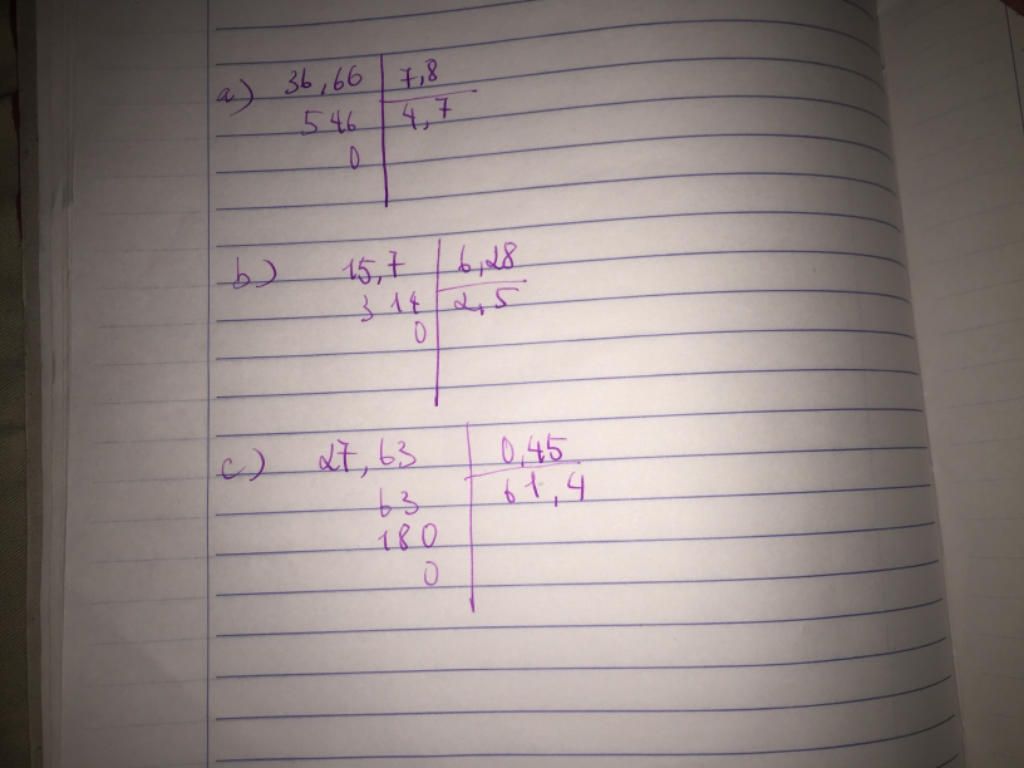 a) 36,66 7,8
546 4,7
0
b) 15,7 6,28
3 14 2,5
0
c) 27,63 0,45
63 61,4
180
0